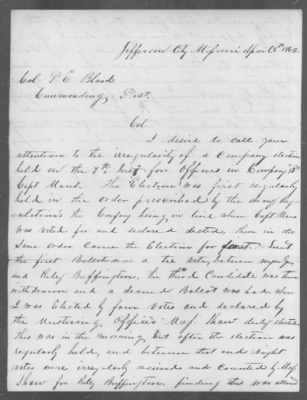 Jefferson City Missouri
Col P. E. Bland
Commanding Post
Col
I desire to call your
attention to the irregularity of a Company election
held on the 7th Inst for Officers in Company
Capt The Election was first regularly
held in the order prescribed by the Army Reg-
ulations the Company being in line when Capt
was voted for and declared elected, then in the
same order came the Election for
the first Ballot was a tie vote, between myself
and Riley Buffington, the third Candidate was then
withdrawn and a second Ballot was had when
I was Elected by four votes and declared by
the Mustering Officer Maj Shaw duly elected
This was in the morning but after the election was
regularly held, and between that and night
votes were irregularly received and Counted by Maj
Shaw for Riley Buffington, finding this was